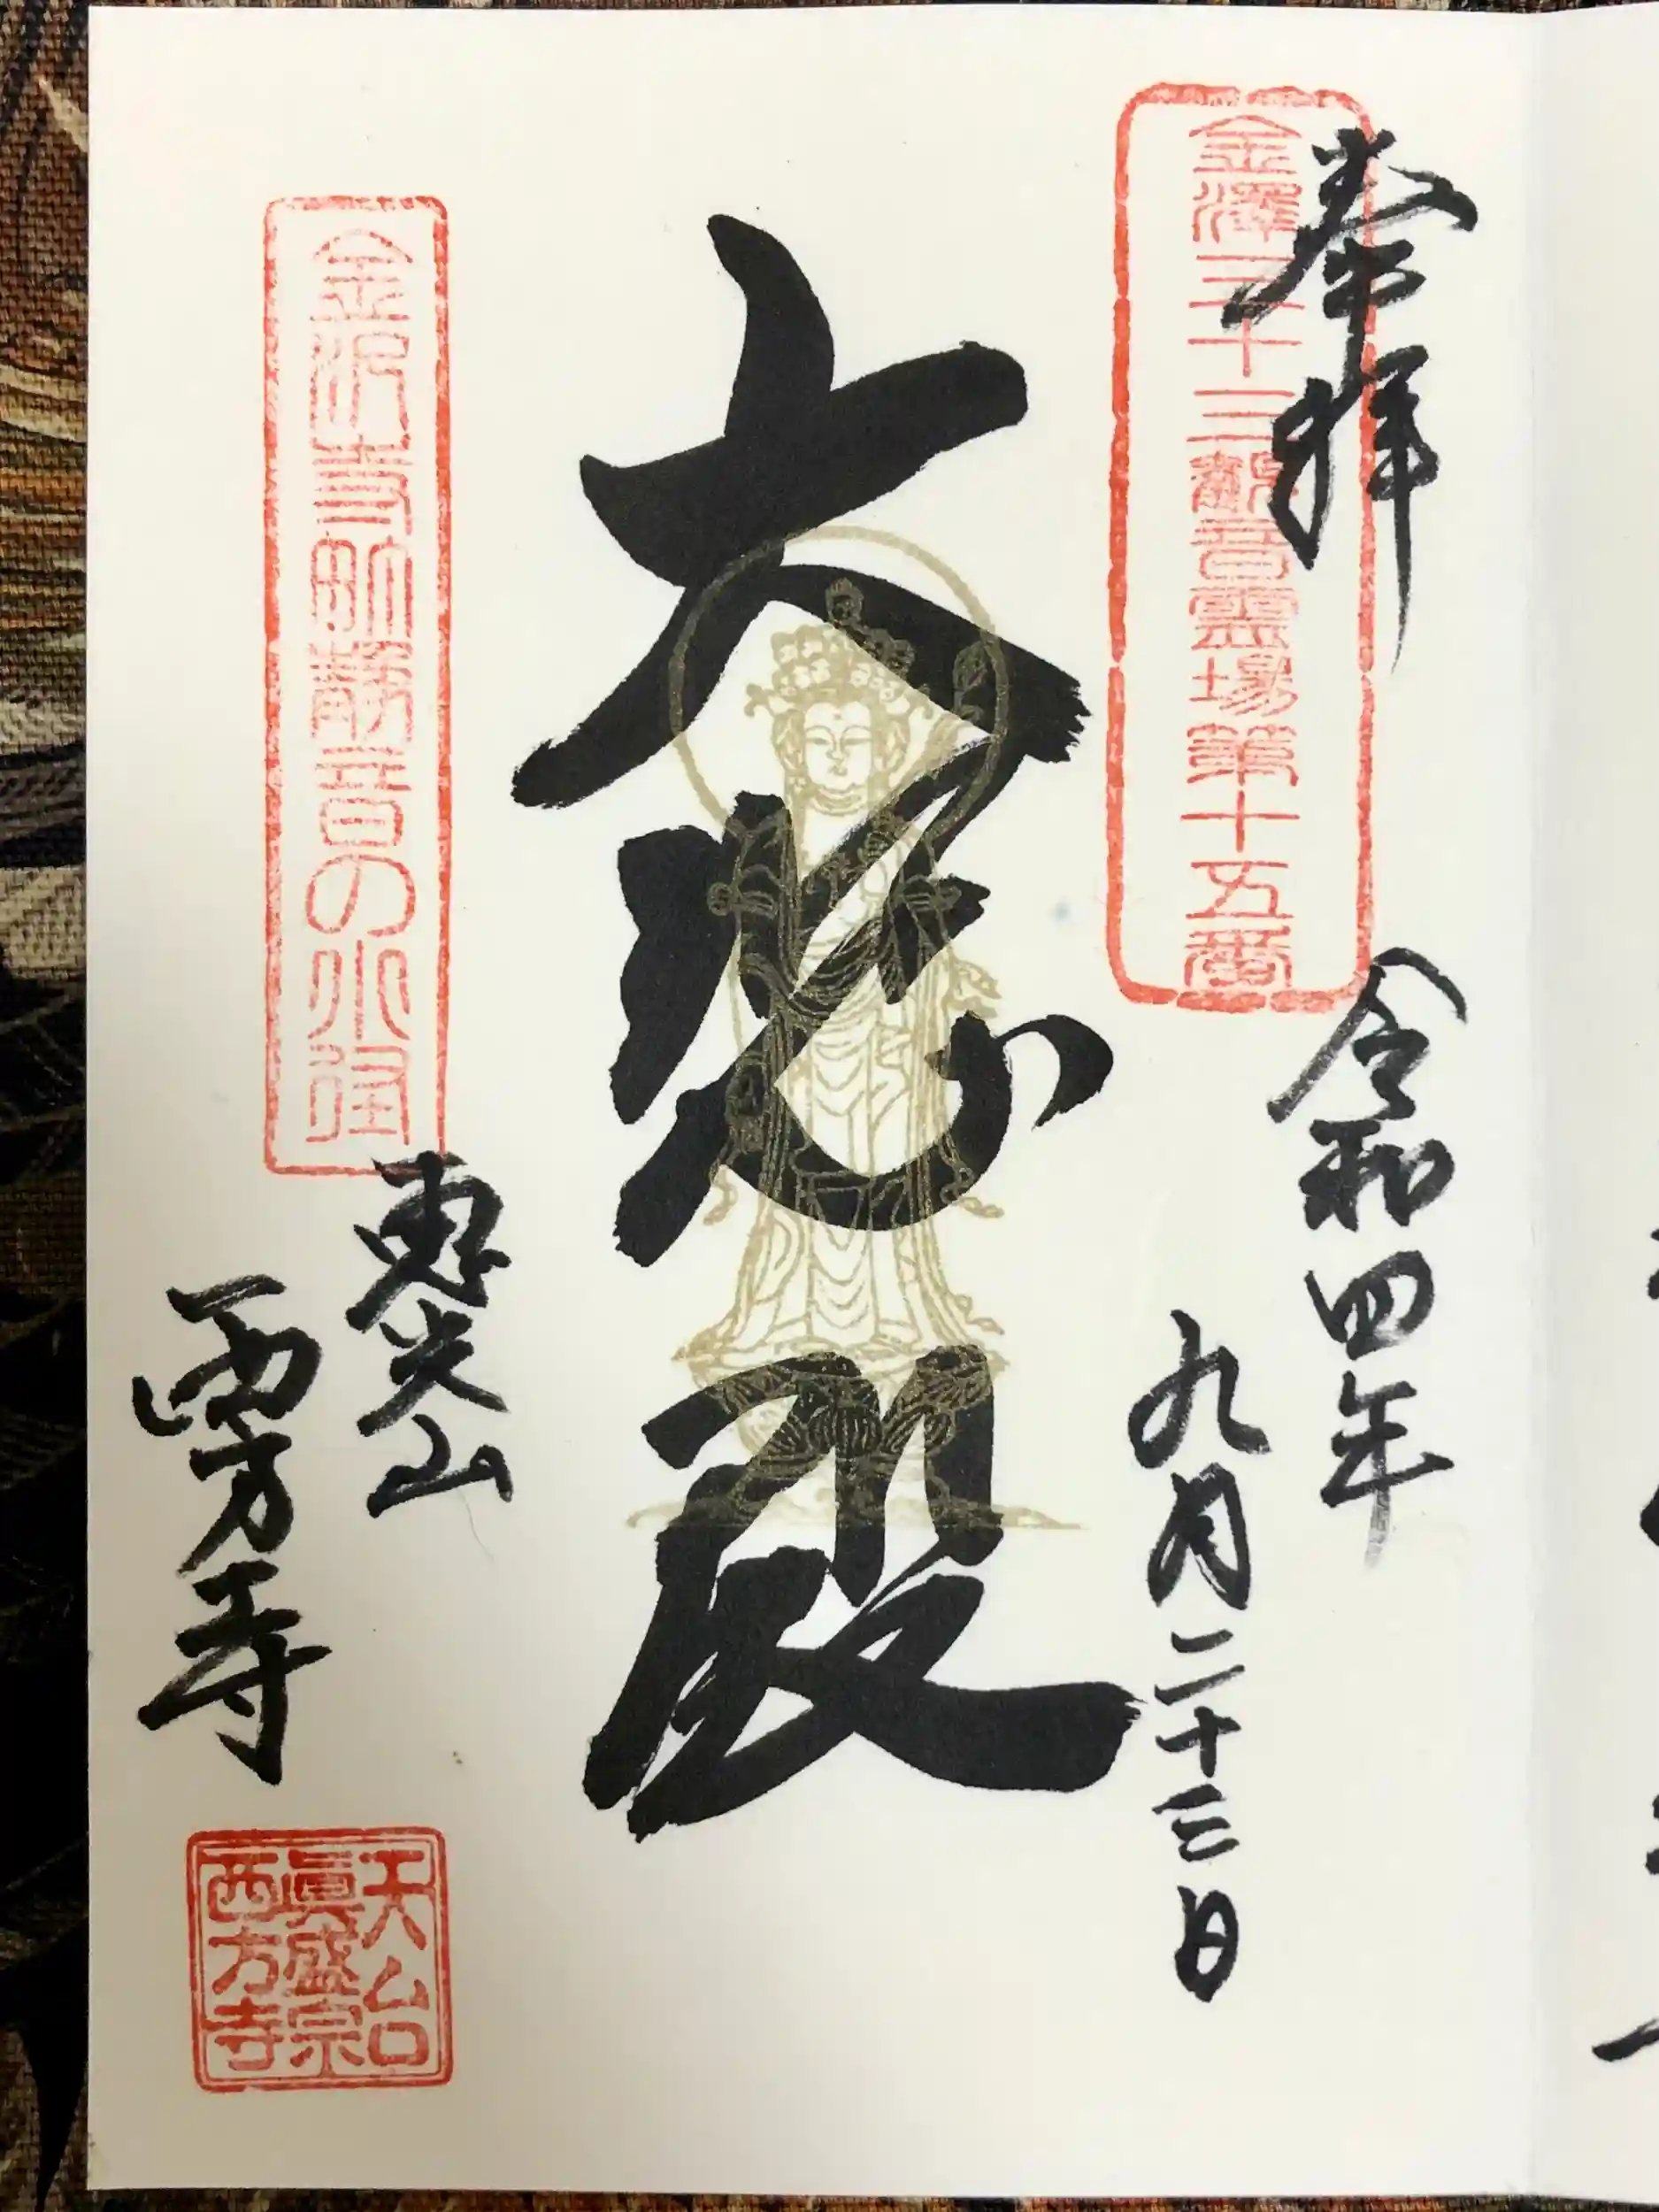 奉拝
金澤三十三観音霊場第十五番
令和四年
九月二十三日
大悲殿
金沢寺町静音の小径
恵光山
西方寺
天台
眞盛宗
西方寺